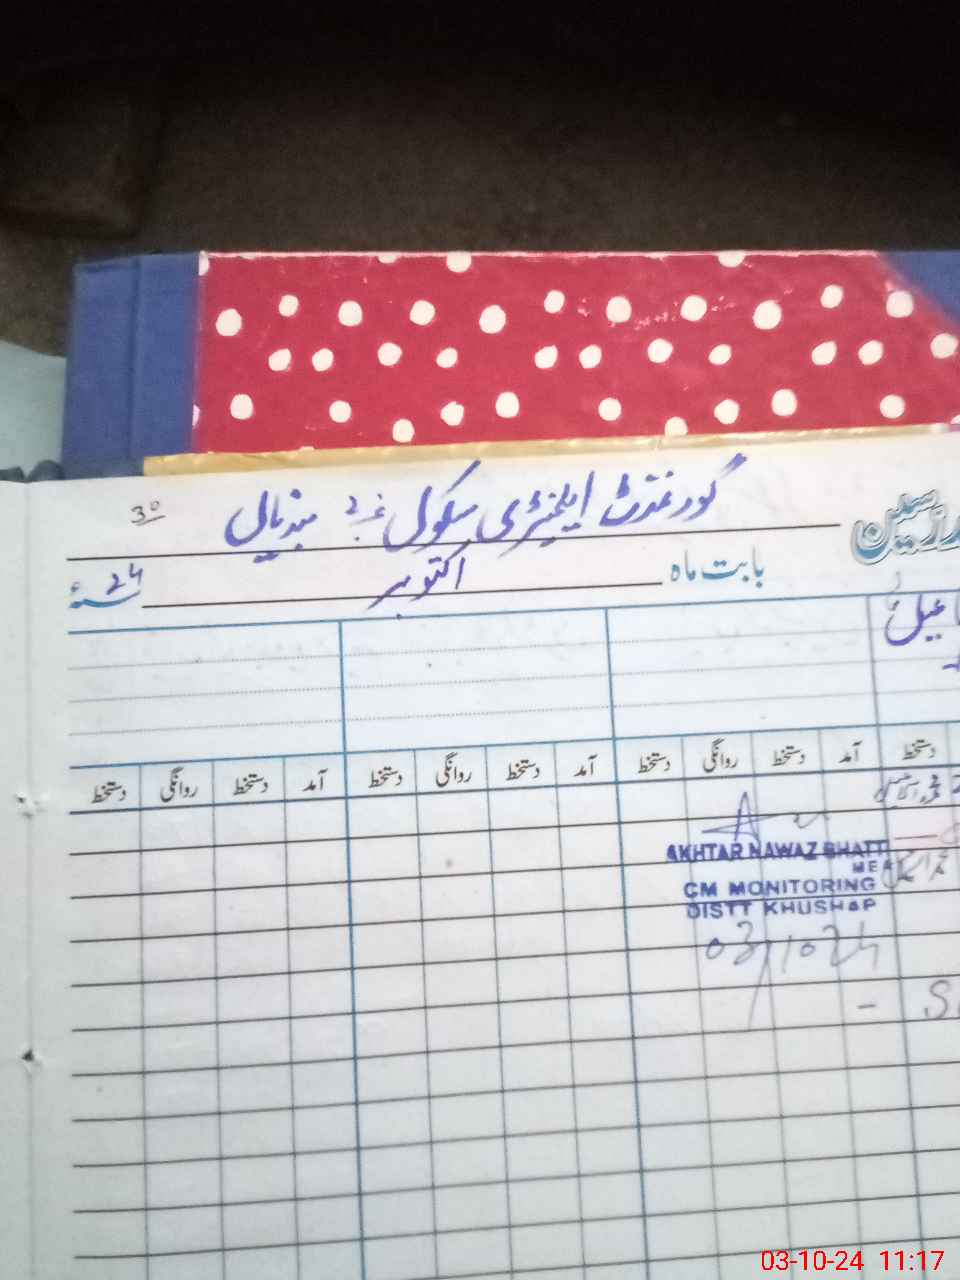 30
گورنمنٹ ایلیمنٹری سکول غربی بندیال
بابت ماہ اکتوبر سنہ 24
آمد دستخط روانگی دستخط آمد دستخط روانگی دستخط آمد دستخط روانگی دستخط
دستخط
AKHTAR NAWAZ BHATTI
MEA
CM MONITORING
DISTT KHUSHAP
03/10/24
03-10-24 11:17